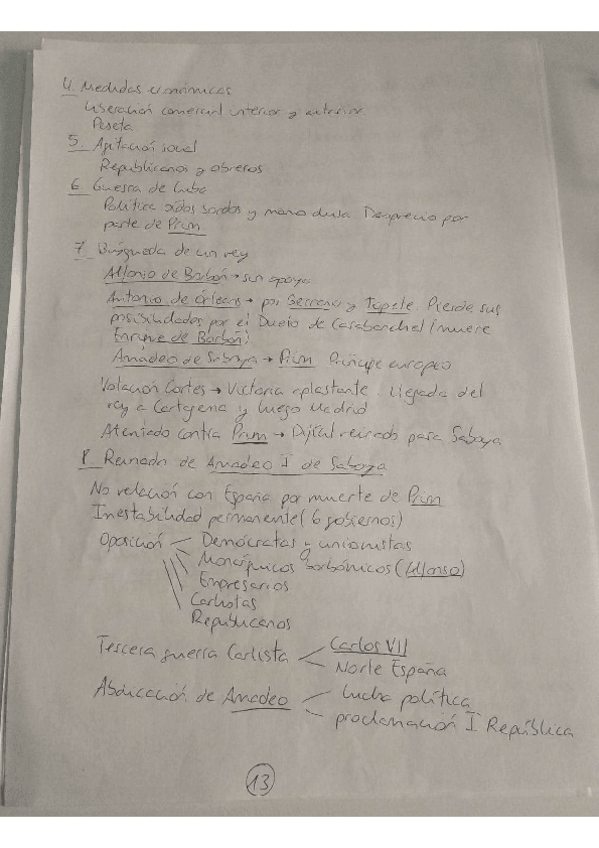 4. Medidas económicas
Liberación comercial interior y exterior
Peseta
5_ Agitación social
Republicanos y obreros
6_ Guerra de Cuba
Política oídos sordos y mano dura. Desprecio por
parte de Prim
7_ Búsqueda de un rey
Alfonso de Borbón → sin apoyo
Antonio de Orleans → por Serrano y Topete. Pierde sus
posibilidades por el Duelo de Carabanchel (muere
Enrique de Borbón)
Amadeo de Saboya → Prim Príncipe europeo
Votación Cortes → Victoria aplastante. Llegada del
rey a Cartagena y luego Madrid
Atentado contra Prim → Difícil reinado para Saboya
8_ Reinado de Amadeo I de Saboya
No relación con España por muerte de Prim
Inestabilidad permanente (6 gobiernos)
Oposición Demócratas y unionistas
Monárquicos borbónicos (Alfonso)
Empresarios
Carlistas
Republicanos
Tercera guerra Carlista Carlos VII
Norte España
Abdicación de Amadeo lucha política
proclamación I República
13